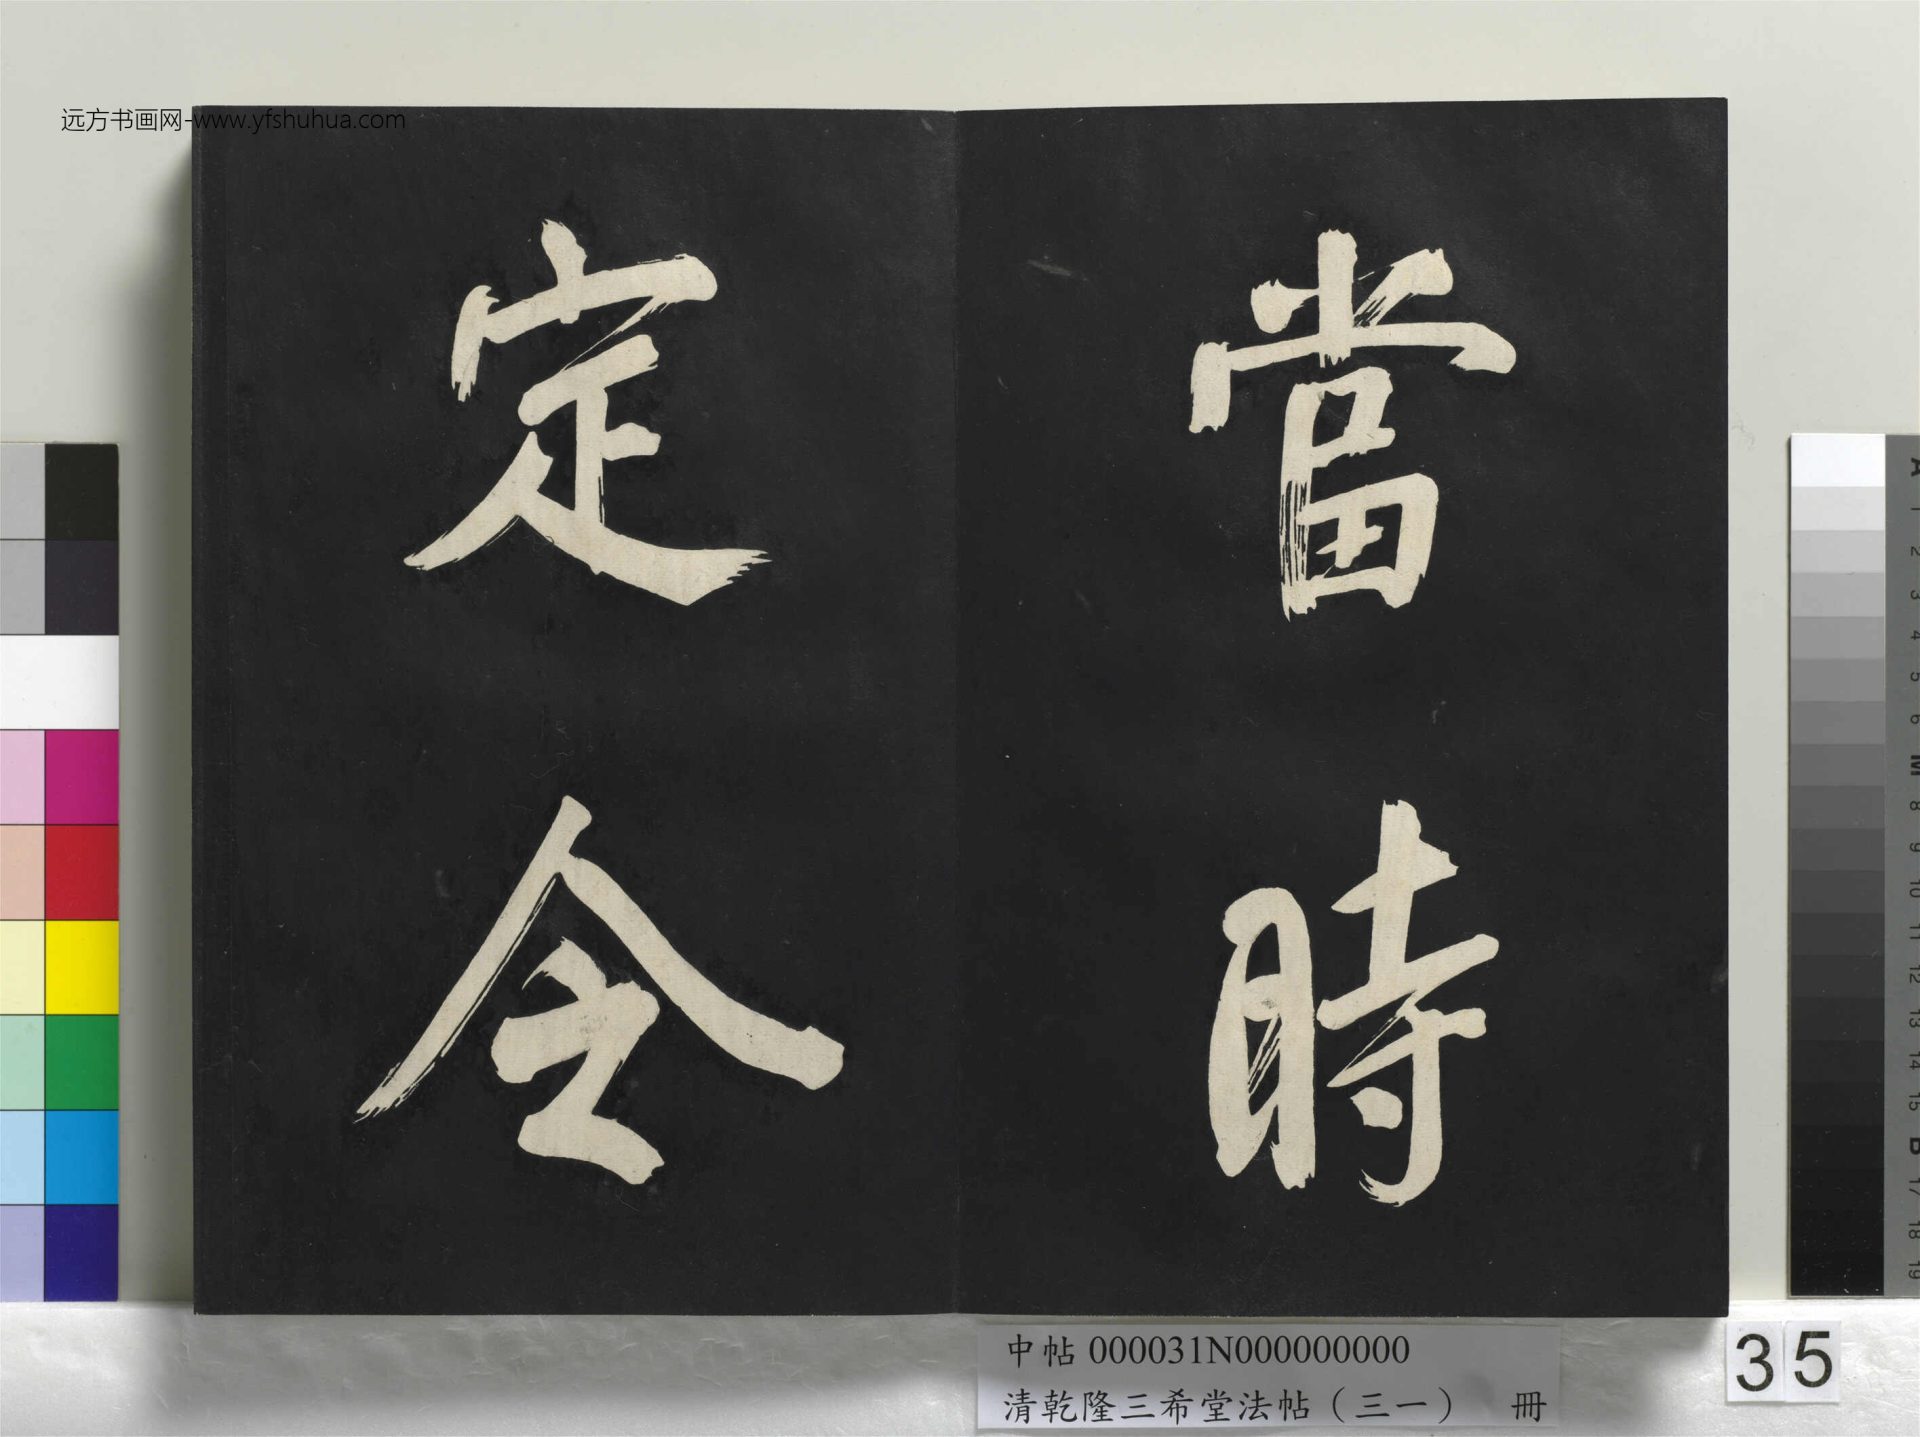 远方书画网-www.yfshuhua.com
當時
定令
中帖 000031N000000000
清乾隆三希堂法帖（三一） 冊
35
A 1 2 3 4 5 6 M 8 9 10 11 12 13 14 15 B 17 18 19